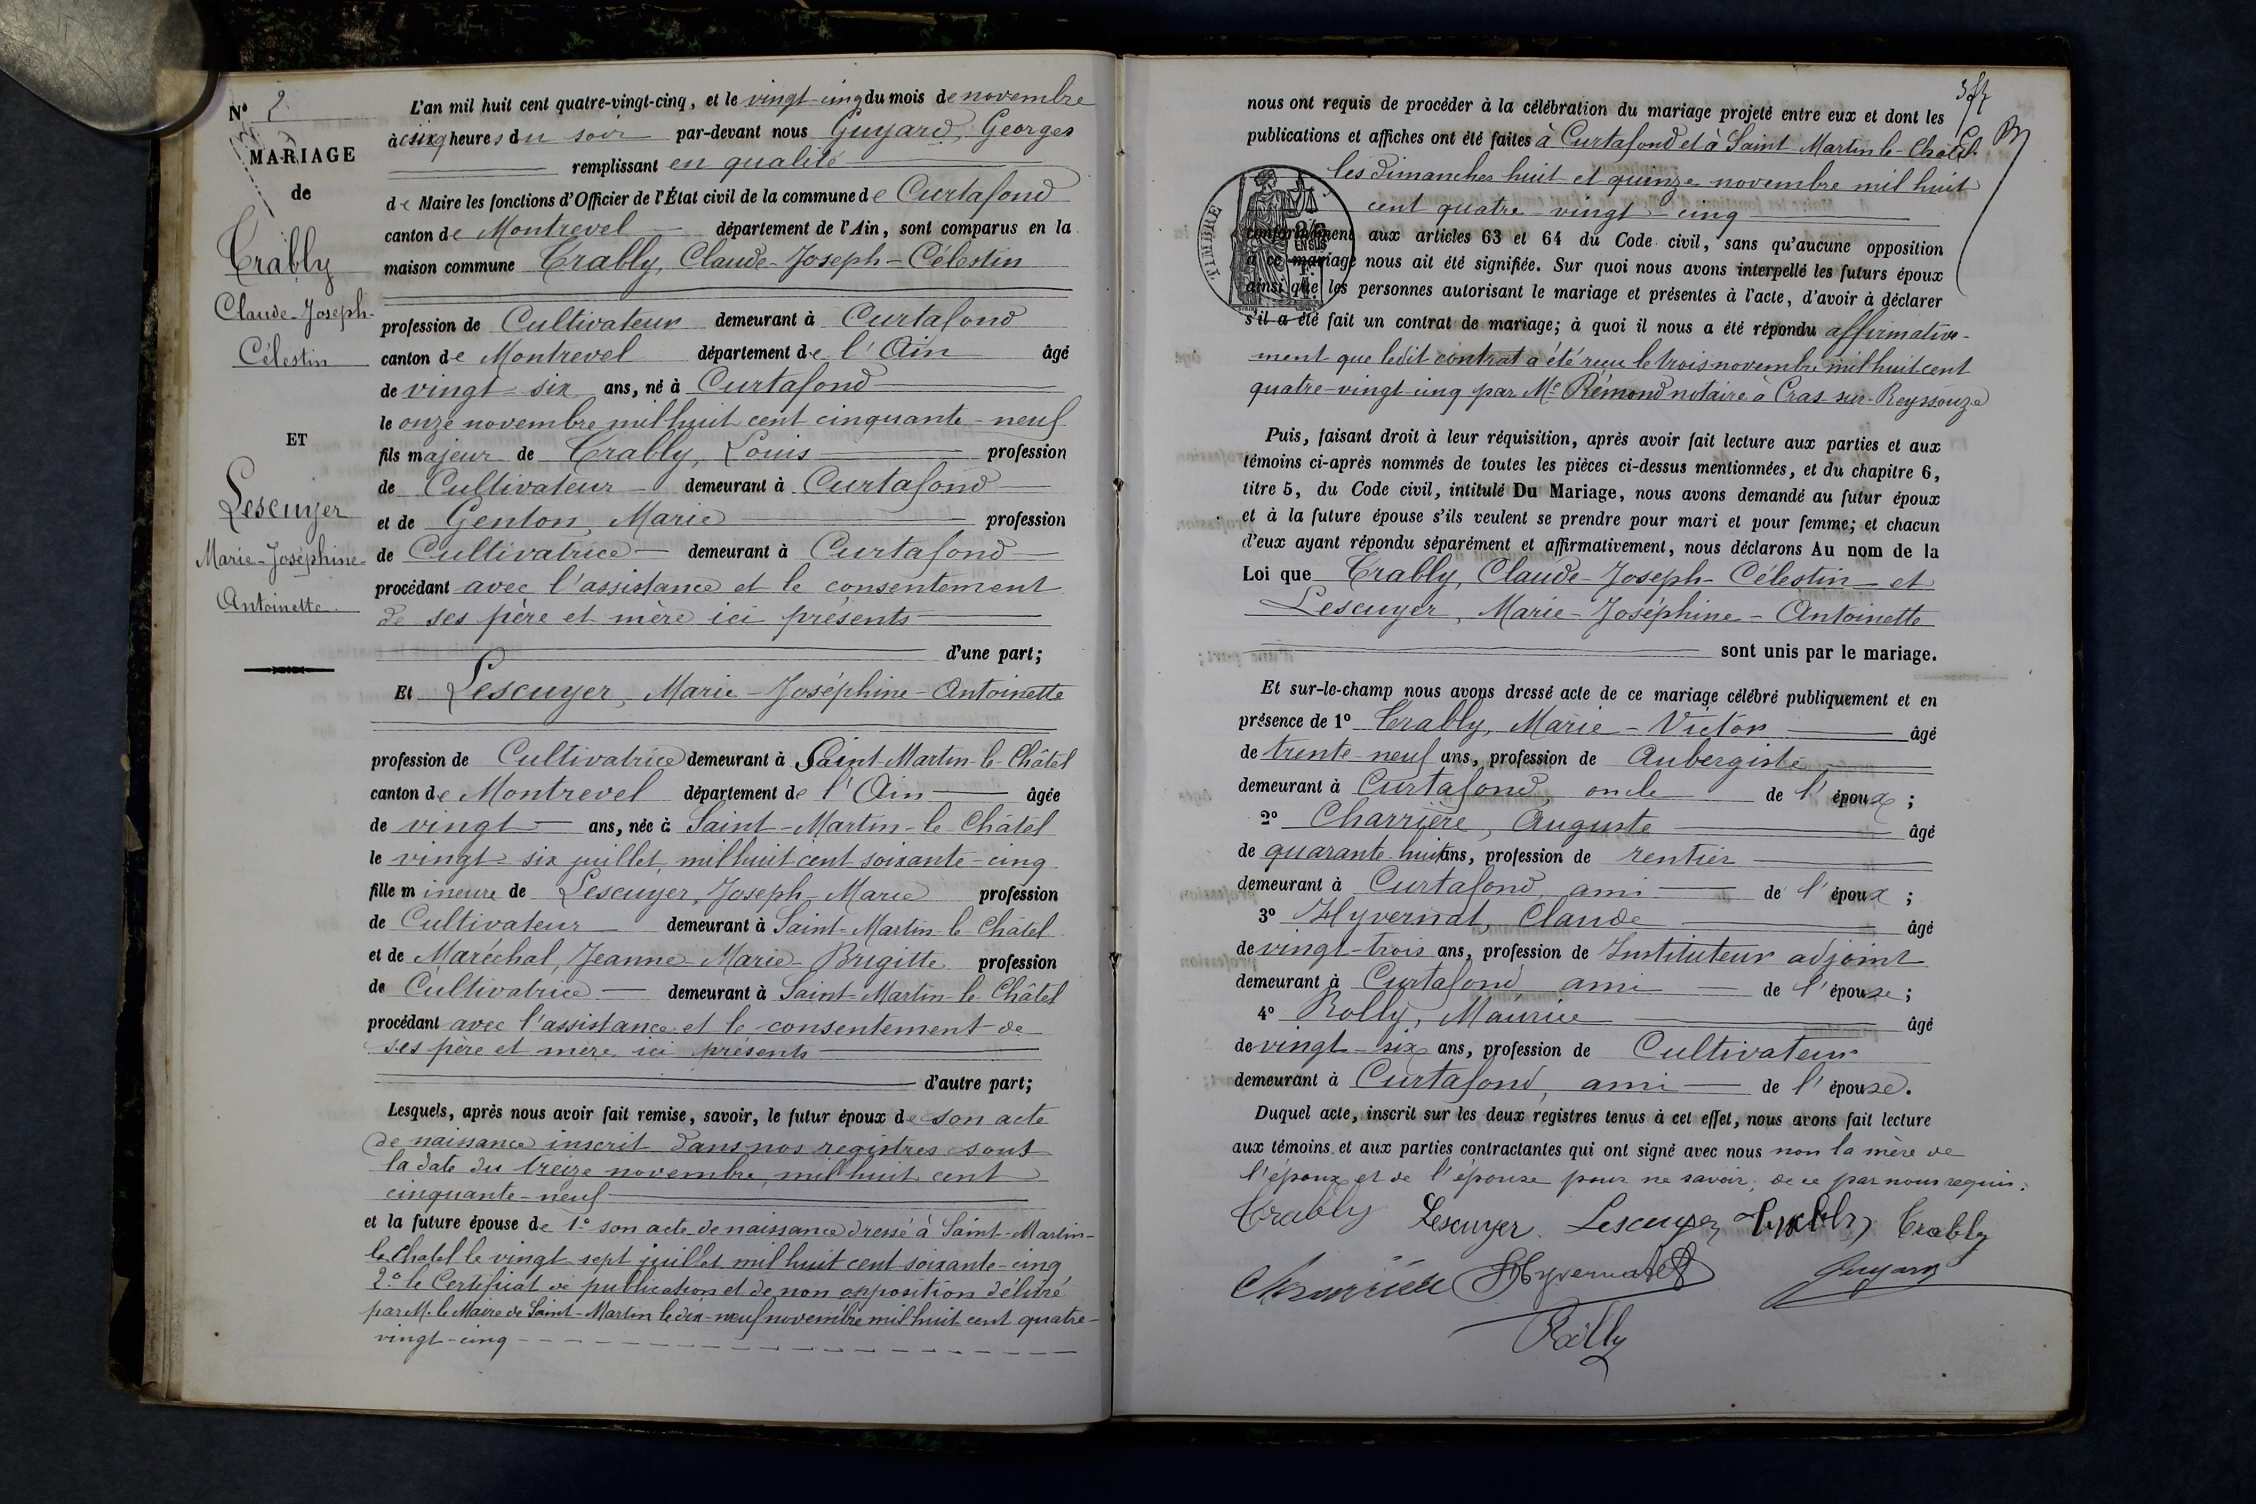 N° 2
MARIAGE
de
Trably
Claude-Joseph-
Célestin
ET
Lescuyer
Marie-Joséphine-
Antoinette
L'an mil huit cent quatre-vingt-cinq, et le vingt-cinq du mois de novembre
à cinq heures du soir par-devant nous Guyard, Georges
remplissant en qualité
de Maire les fonctions d'Officier de l'État civil de la commune de Curtafond
canton de Montrevel département de l'Ain, sont comparus en la
maison commune Trably, Claude-Joseph-Célestin
profession de Cultivateur demeurant à Curtafond
canton de Montrevel département de l'Ain âgé
de vingt-six ans, né à Curtafond
le onze novembre mil huit cent cinquante-neuf
fils majeur de Trably, Louis profession
de Cultivateur demeurant à Curtafond
et de Genton, Marie profession
de Cultivatrice demeurant à Curtafond
procédant avec l'assistance et le consentement
de ses père et mère ici présents
d'une part;
Et Lescuyer, Marie-Joséphine-Antoinette
profession de Cultivatrice demeurant à Saint-Martin-le-Châtel
canton de Montrevel département de l'Ain âgée
de vingt ans, née à Saint-Martin-le-Châtel
le vingt-six juillet, mil huit cent soixante-cinq
fille mineure de Lescuyer, Joseph-Marie profession
de Cultivateur demeurant à Saint-Martin-le-Châtel
et de Maréchal, Jeanne-Marie-Brigitte profession
de Cultivatrice demeurant à Saint-Martin-le-Châtel
procédant avec l'assistance et le consentement de
ses père et mère ici présents
d'autre part;
Lesquels, après nous avoir fait remise, savoir, le futur époux de son acte
de naissance inscrit dans nos registres sous
la date du treize novembre, mil huit cent
cinquante-neuf
et la future épouse de 1° son acte de naissance dressé à Saint-Martin-
le-Chatel le vingt sept juillet mil huit cent soixante-cinq
2° le Certificat de publication et de non opposition délivré
par M. le Maire de Saint-Martin le dix-neuf novembre mil huit cent quatre-
vingt-cinq
nous ont requis de procéder à la célébration du mariage projeté entre eux et dont les
publications et affiches ont été faites à Curtafond et à Saint Martin-le-Châtel
les dimanches huit et quinze novembre mil huit
cent quatre-vingt-cinq
TIMBRE
conformément aux articles 63 et 64 du Code civil, sans qu'aucune opposition
à ce mariage nous ait été signifiée. Sur quoi nous avons interpellé les futurs époux
ainsi que les personnes autorisant le mariage et présentes à l'acte, d'avoir à déclarer
s'il a été fait un contrat de mariage; à quoi il nous a été répondu affirmative-
ment que ledit contrat a été reçu le trois novembre mil huit cent
quatre-vingt-cinq par Me Rémond notaire à Cras-sur-Reyssouze
Puis, faisant droit à leur réquisition, après avoir fait lecture aux parties et aux
témoins ci-après nommés de toutes les pièces ci-dessus mentionnées, et du chapitre 6,
titre 5, du Code civil, intitulé Du Mariage, nous avons demandé au futur époux
et à la future épouse s'ils veulent se prendre pour mari et pour femme; et chacun
d'eux ayant répondu séparément et affirmativement, nous déclarons Au nom de la
Loi que Trably, Claude-Joseph-Célestin et
Lescuyer, Marie-Joséphine-Antoinette
sont unis par le mariage.
Et sur-le-champ nous avons dressé acte de ce mariage célébré publiquement et en
présence de 1° Trably, Marie-Victor âgé
de trente-neuf ans, profession de Aubergiste
demeurant à Curtafond, oncle de l'époux;
2° Charrière, Auguste âgé
de quarante-huit ans, profession de rentier
demeurant à Curtafond, ami de l'époux;
3° Hyvernat, Claude âgé
de vingt-trois ans, profession de Instituteur adjoint
demeurant à Curtafond ami de l'épouse;
4° Rolly, Maurice âgé
de vingt-six ans, profession de Cultivateur
demeurant à Curtafond, ami de l'épouse.
Duquel acte, inscrit sur les deux registres tenus à cet effet, nous avons fait lecture
aux témoins et aux parties contractantes qui ont signé avec nous non la mère de
l'époux et de l'épouse pour ne savoir, de ce par nous requis.
Trably Lescuyer Lescuyer Trably Trably
Charrière Hyvernat Guyard
Rolly